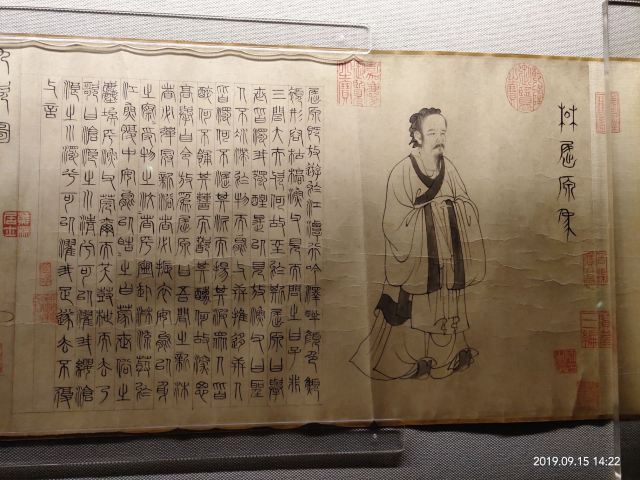 屈原像
屈原既放游於江潭行吟澤畔顏色憔
悴形容枯槁漁父見而問之曰子非
三閭大夫與何故至於斯屈原曰舉
世皆濁我獨醒是以見放漁父曰聖
人不凝滯於物而能與世推移世人
皆濁何不淈其泥而揚其波眾人皆
醉何不餔其糟而歠其醨何故深思
高舉自令放為屈原曰吾聞之新沐
者必彈冠新浴者必振衣安能以身
之察察受物之汶汶者乎寧赴湘流葬於
江魚腹中安能以皓皓之白蒙世俗之
塵埃乎漁父莞爾而笑鼓枻而去乃
歌曰滄浪之水清兮可以濯我纓滄
浪之水濁兮可以濯我足遂去不復
與言
2019.09.15 14:22